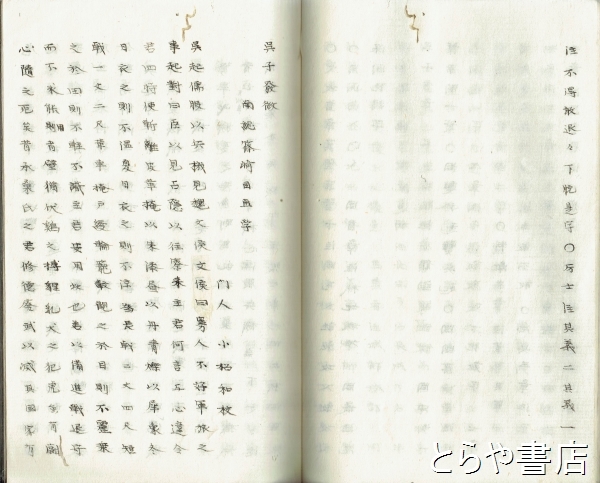 呉子發微
門人 小松和
呉起儒服以兵機見魏文侯文侯曰寡人不好軍旅之
事起對曰臣以見占隱以往察来主君何言与心違今
君四時使斬離皮革掩以朱漆畫以丹青爍以犀象冬
日衣之則不温夏日衣之則不涼為長戟二丈四尺短
戟一丈二尺革車掩戸縵輪籠轂觀之於目則不麗乗
之於田則不輕不識主君安用此也若以備進戰退守
而不求能用者譬猶伏鷄之搏貍乳犬之犯虎雖有闘
心隨之死矣昔承桑氏之君修德廢武以滅其国家有
とらや書店